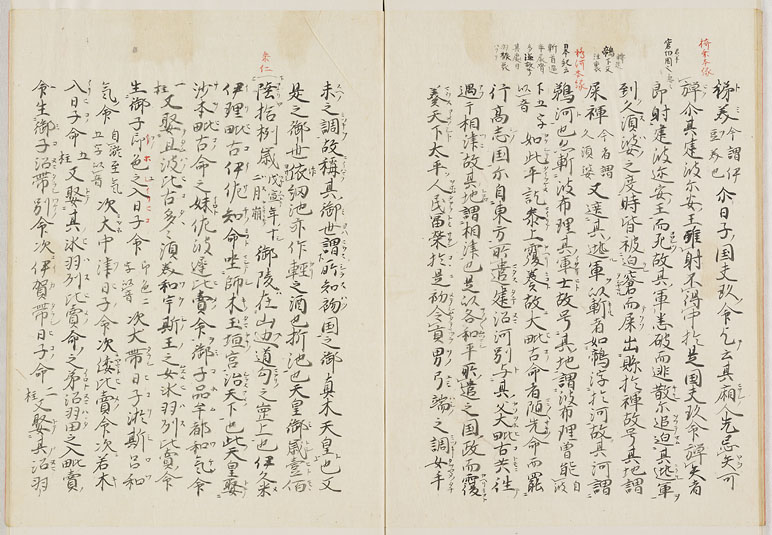 今謂伊豆美也 尒日子国夫玖命乞云其廂人先忌矢可
弾尒其建波尓安王雖射不得中於是国夫玖命弾矢者
即射建波迩安王而死故其軍悉破而逃散尓追迫其逃軍
到久須婆之度時皆被迫窘而屎出懸於褌故号其地謂
屎褌 今者謂久須婆 又遮其逃軍以斬者如鵜浮於河故其河謂
鵜河也亦斬波布理其軍士故号其地謂波布理曽能 自波
下五字以音 如此平訖参上覆奏故大毗古命者随先命而罷
行高志国尓自東方所遣建沼河別与其父大毗古共往
遇于相津故其地謂相津也是以各和平所遣之国政而覆
奏天下太平人民富栄於是初令貢男弓端之調女手
末之調故称其御世謂所知初国之御真木天皇也又
是之御世依網池亦作軽之酒折池也天皇御歳壹佰
陸拾捌歳 戊寅年十二月崩 御陵在山辺道勾之岡上也 伊久米
伊理毗古伊佐知命坐師木玉垣宮治天下也此天皇娶
沙本毗古命之妹佐波遅比賣命御子品牟都和氣命 一柱
又娶旦波比古多々須美知宇斯王之女氷羽州比賣命
生御子印色之入日子命 印色二字以音 次大帯日子淤斯呂和
氣命 自淤至気五字以音 次大中津日子命次倭比賣命次若木
入日子命 五柱 又娶其氷羽州比賣命之弟沼羽田之入毗賣
命生御子沼帯別命次伊賀帯日子命 二柱 又娶其沼羽
垂仁